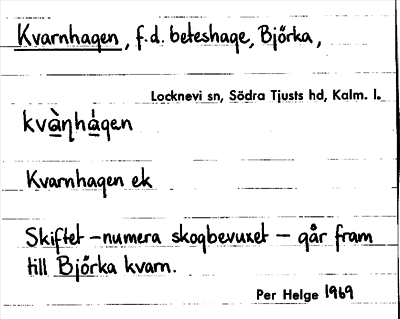 Kvarnhagen, f.d. beteshage, Björka,
Locknevi sn, Södra Tjusts hd, Kalm. l.
kvàṇhágen
Kvarnhagen ek
Skiftet – numera skogbevuxet – går fram
till Björka kvarn.
Per Helge 1969